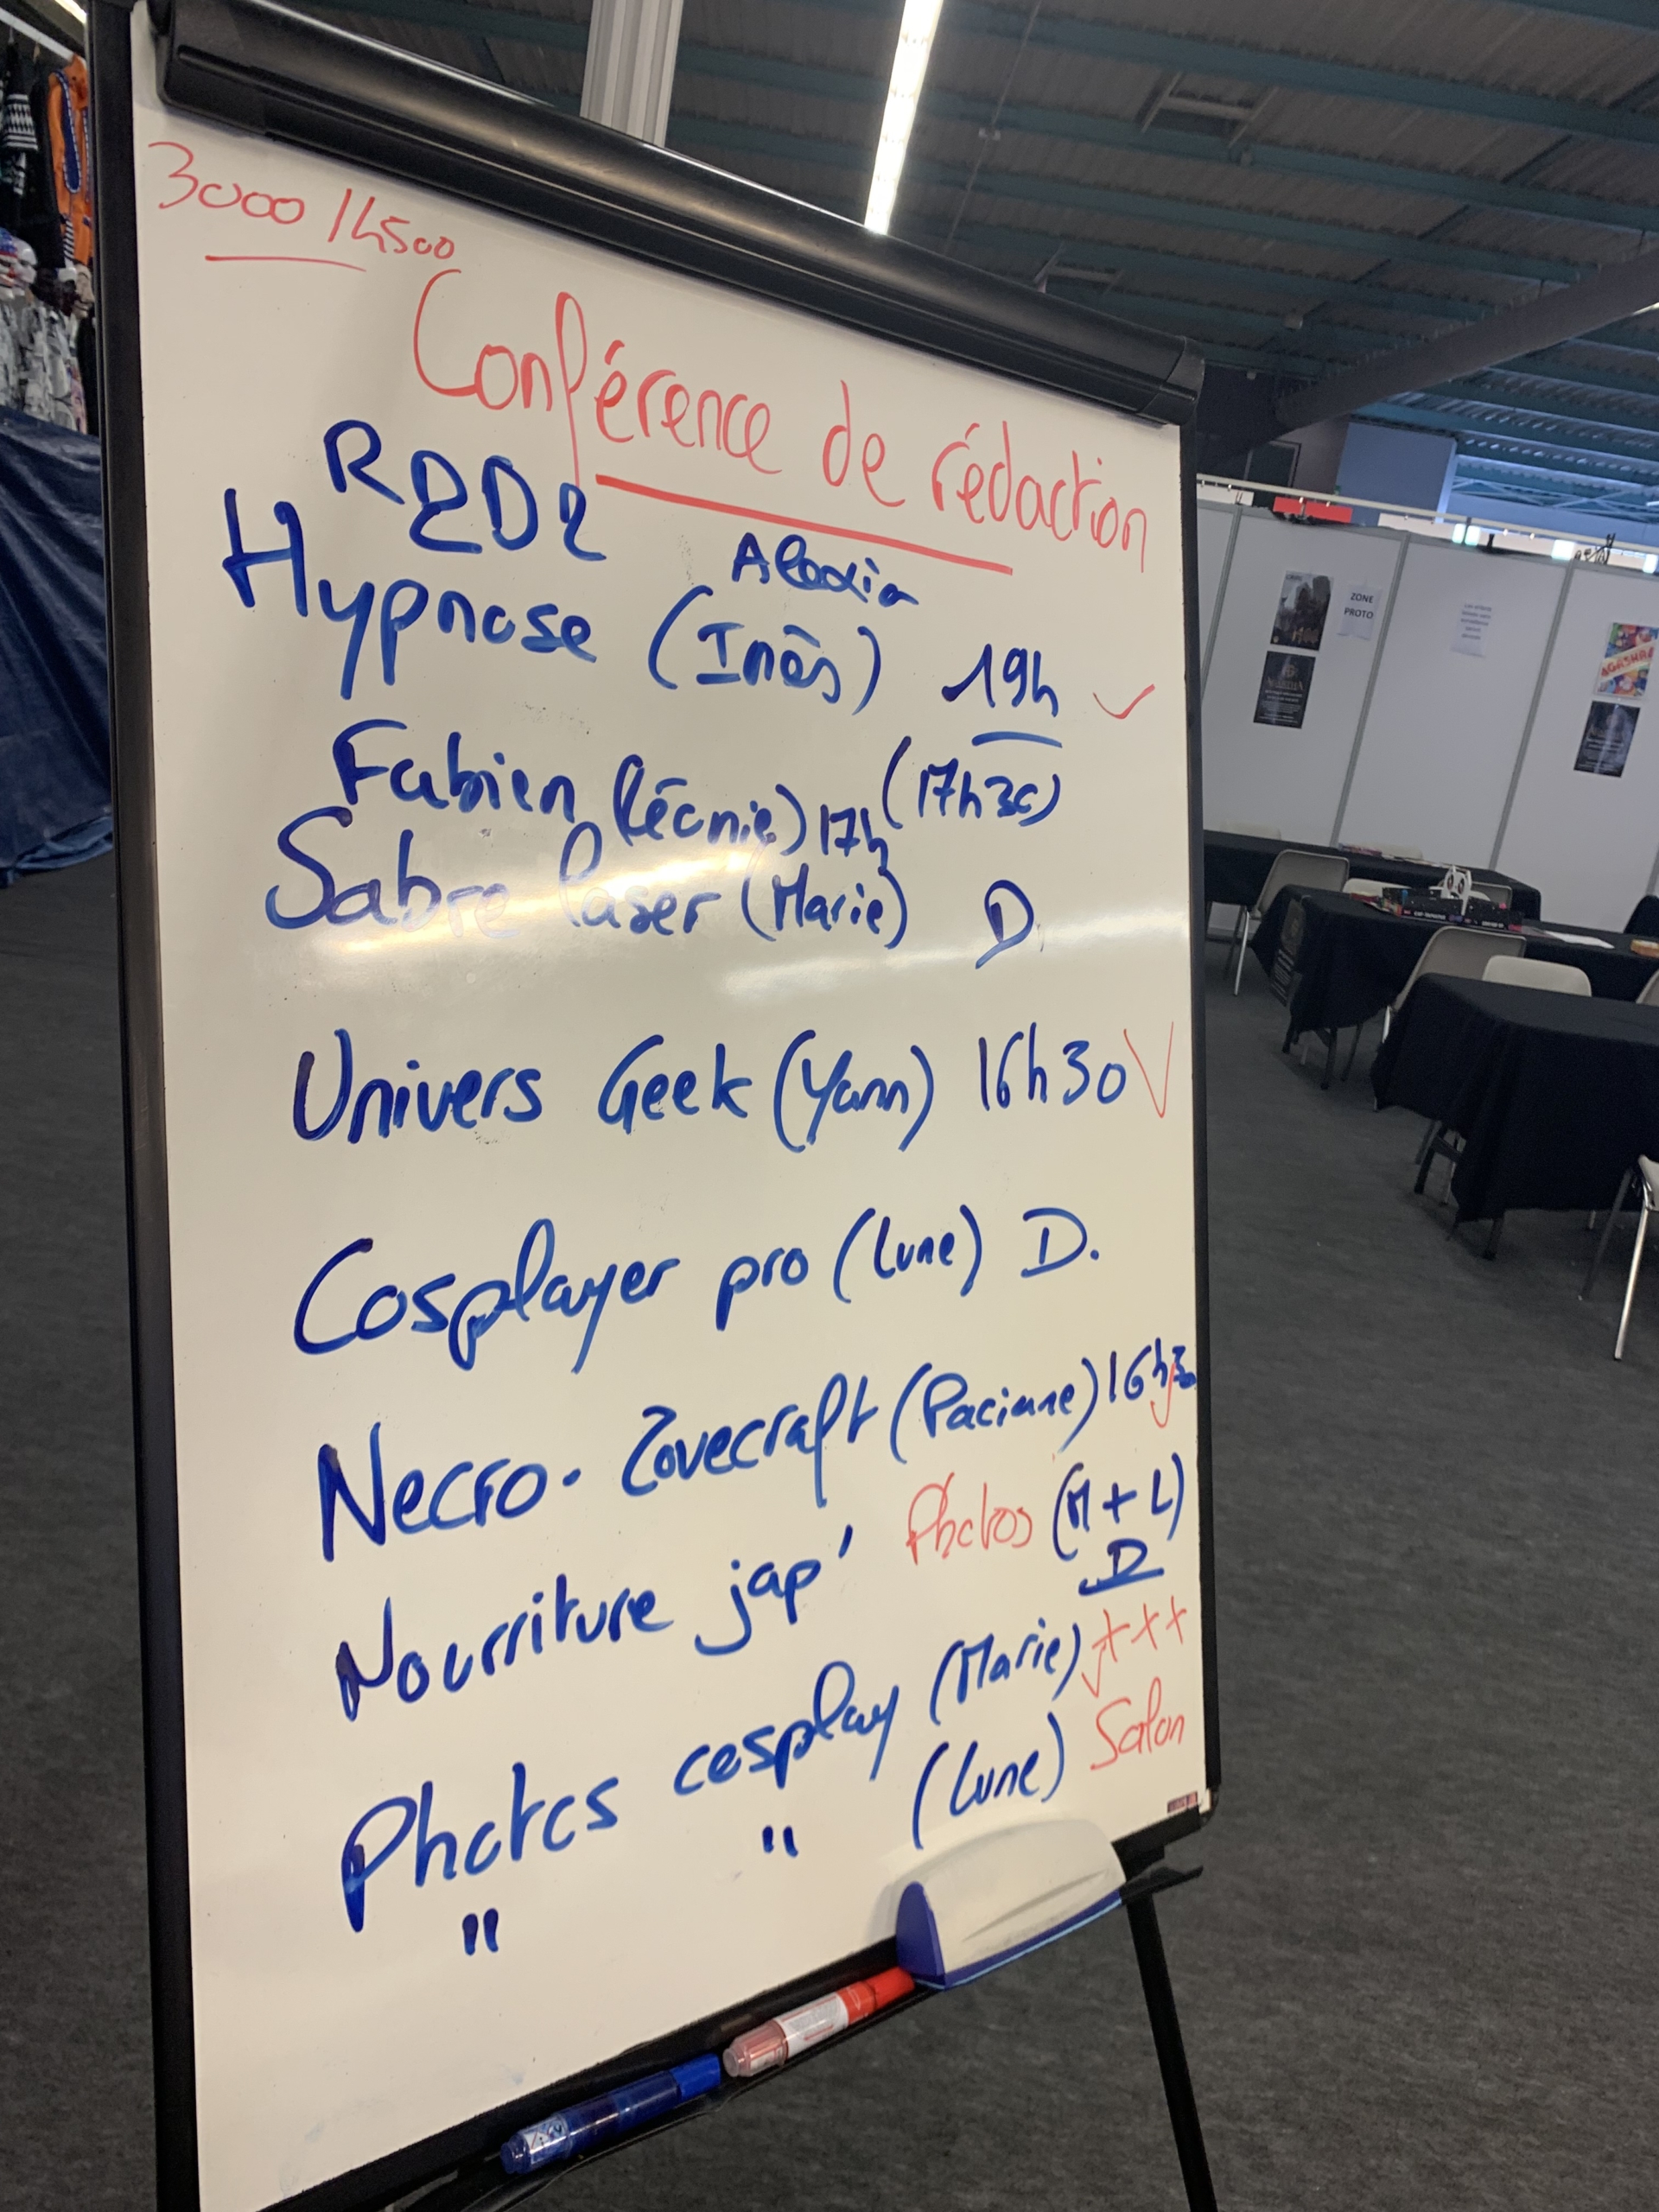 3000 / 4500
Conférence de rédaction
R2D2
Alexia
Hypnose (Inès) 19h
Fabien (Lécnie) 17h (17h30)
Sabre laser (Marie) D.
Univers Geek (Yann) 16h30
Cosplayer pro (Lune) D.
Necro. Lovecraft (Paciane) 16h30
Nourriture jap' Photos (M + L)
D
Photos cosplay (Marie) +++
" " (Lune) Salon
ZONE
PROTO